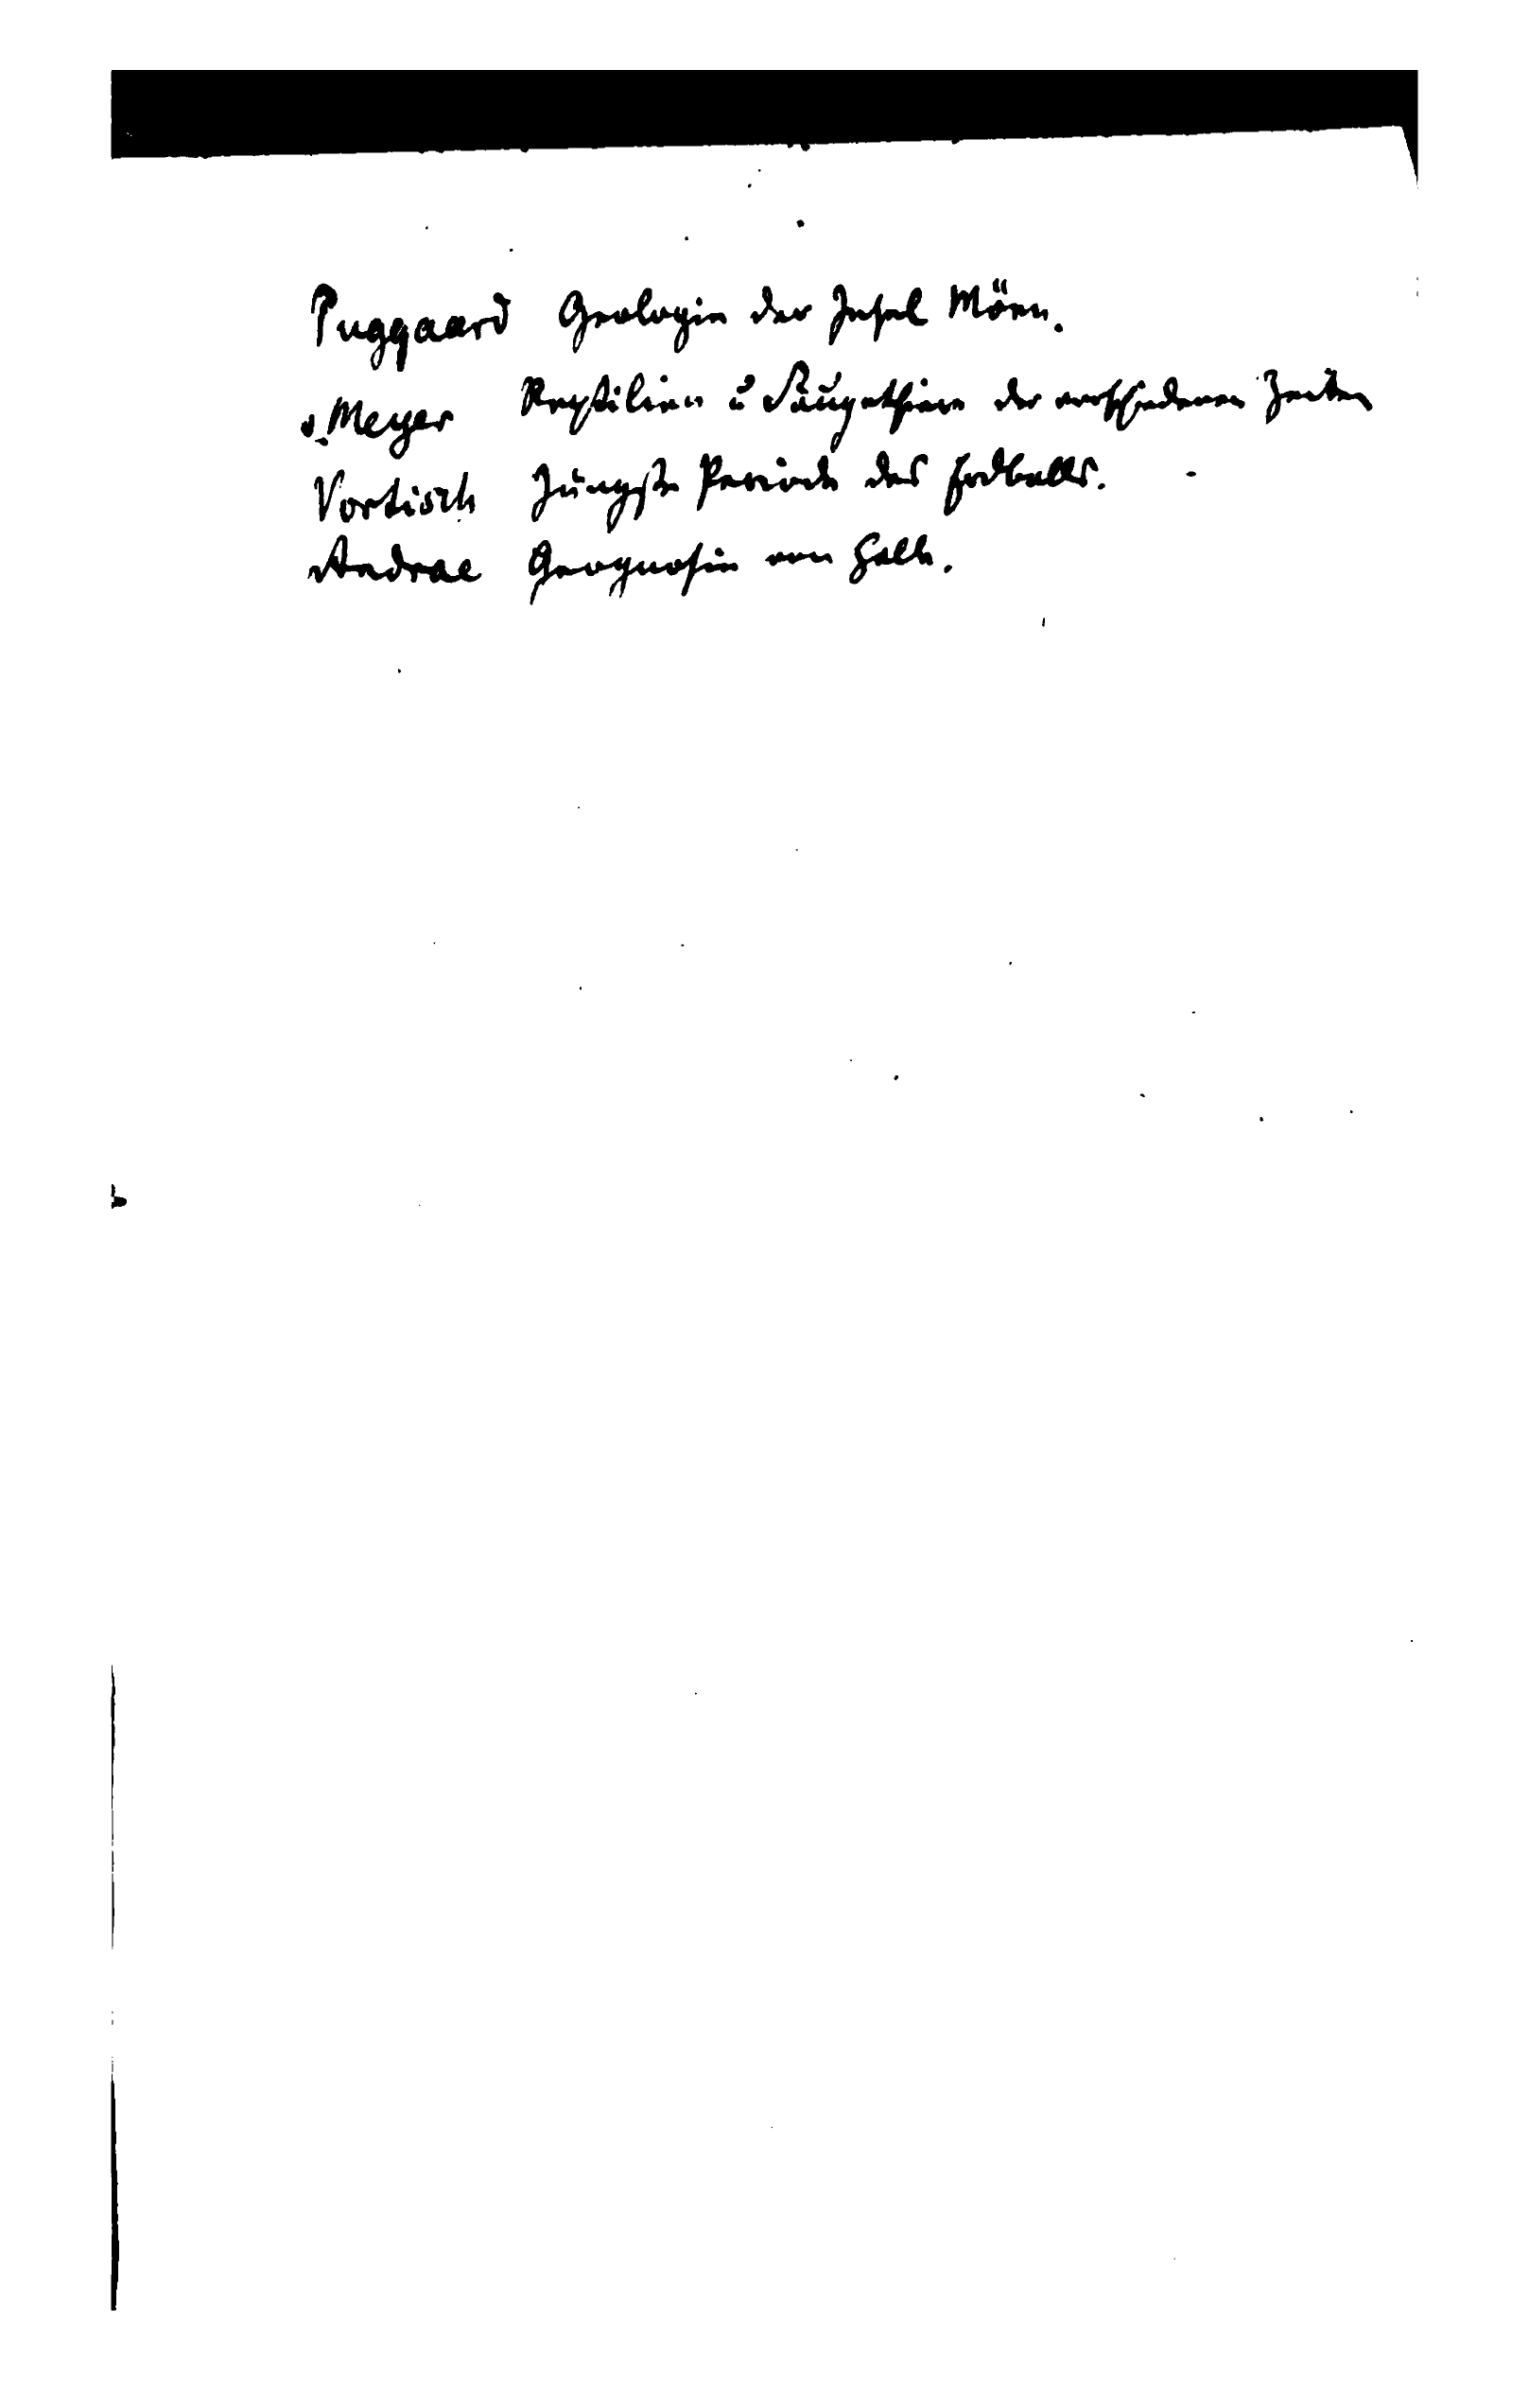 Puggaard Geologie der Insel Möen.
v. Meyer Reptilien u Säugethiere der verschiedenen Zeiten
Vortisch Jüngste Periode des Erdballs.
Andrae Geognosie von Halle.